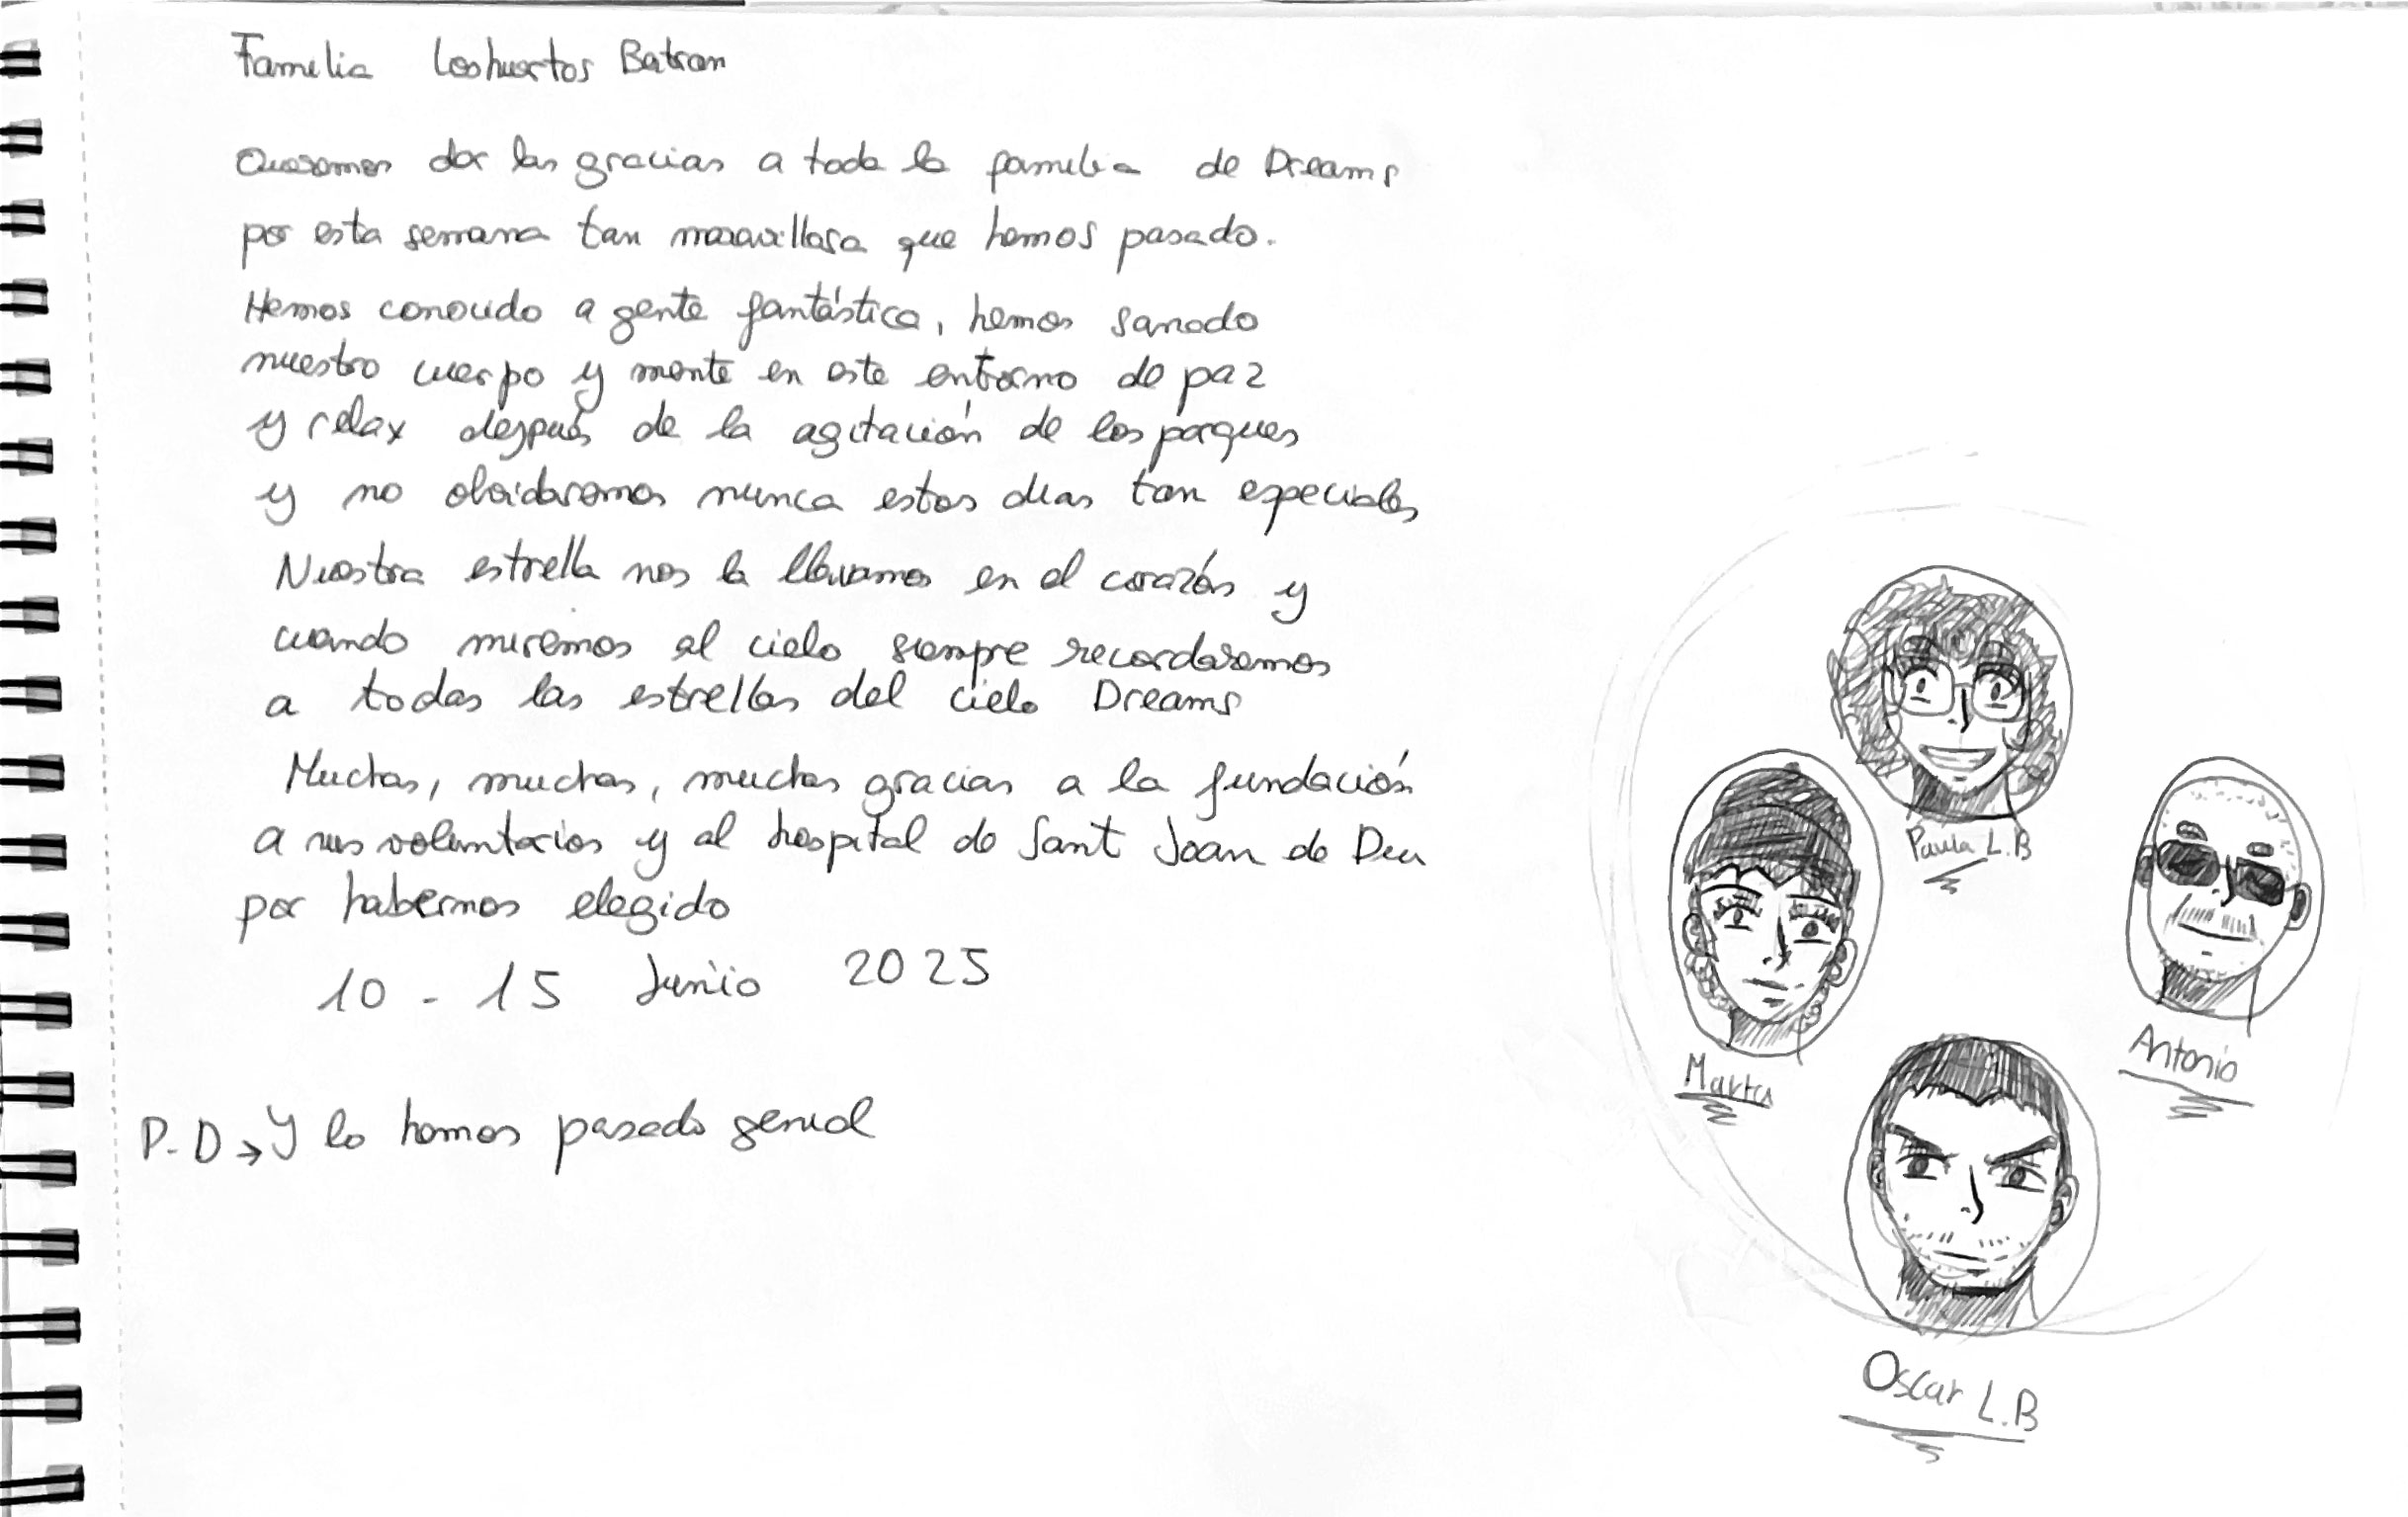 Familia Loshuertos Batran
Queremos dar las gracias a toda la familia de Dreams
por esta semana tan maravillosa que hemos pasado.
Hemos conocido a gente fantástica, hemos sanado
nuestro cuerpo y mente en este entorno de paz
y relax después de la agitación de los parques
y no olvidaremos nunca estos dias tan especiales
Nuestra estrella nos la llevamos en el corazón y
cuando miremos al cielo siempre recordaremos
a todas las estrellas del cielo Dreams
Muchas, muchas, muchas gracias a la fundación
a sus voluntarios y al hospital de Sant Joan de Deu
por habernos elegido
10 - 15 Junio 2025
P-D → y lo hemos pasado genial
Paula L.B
Marta
Antonio
Oscar L.B